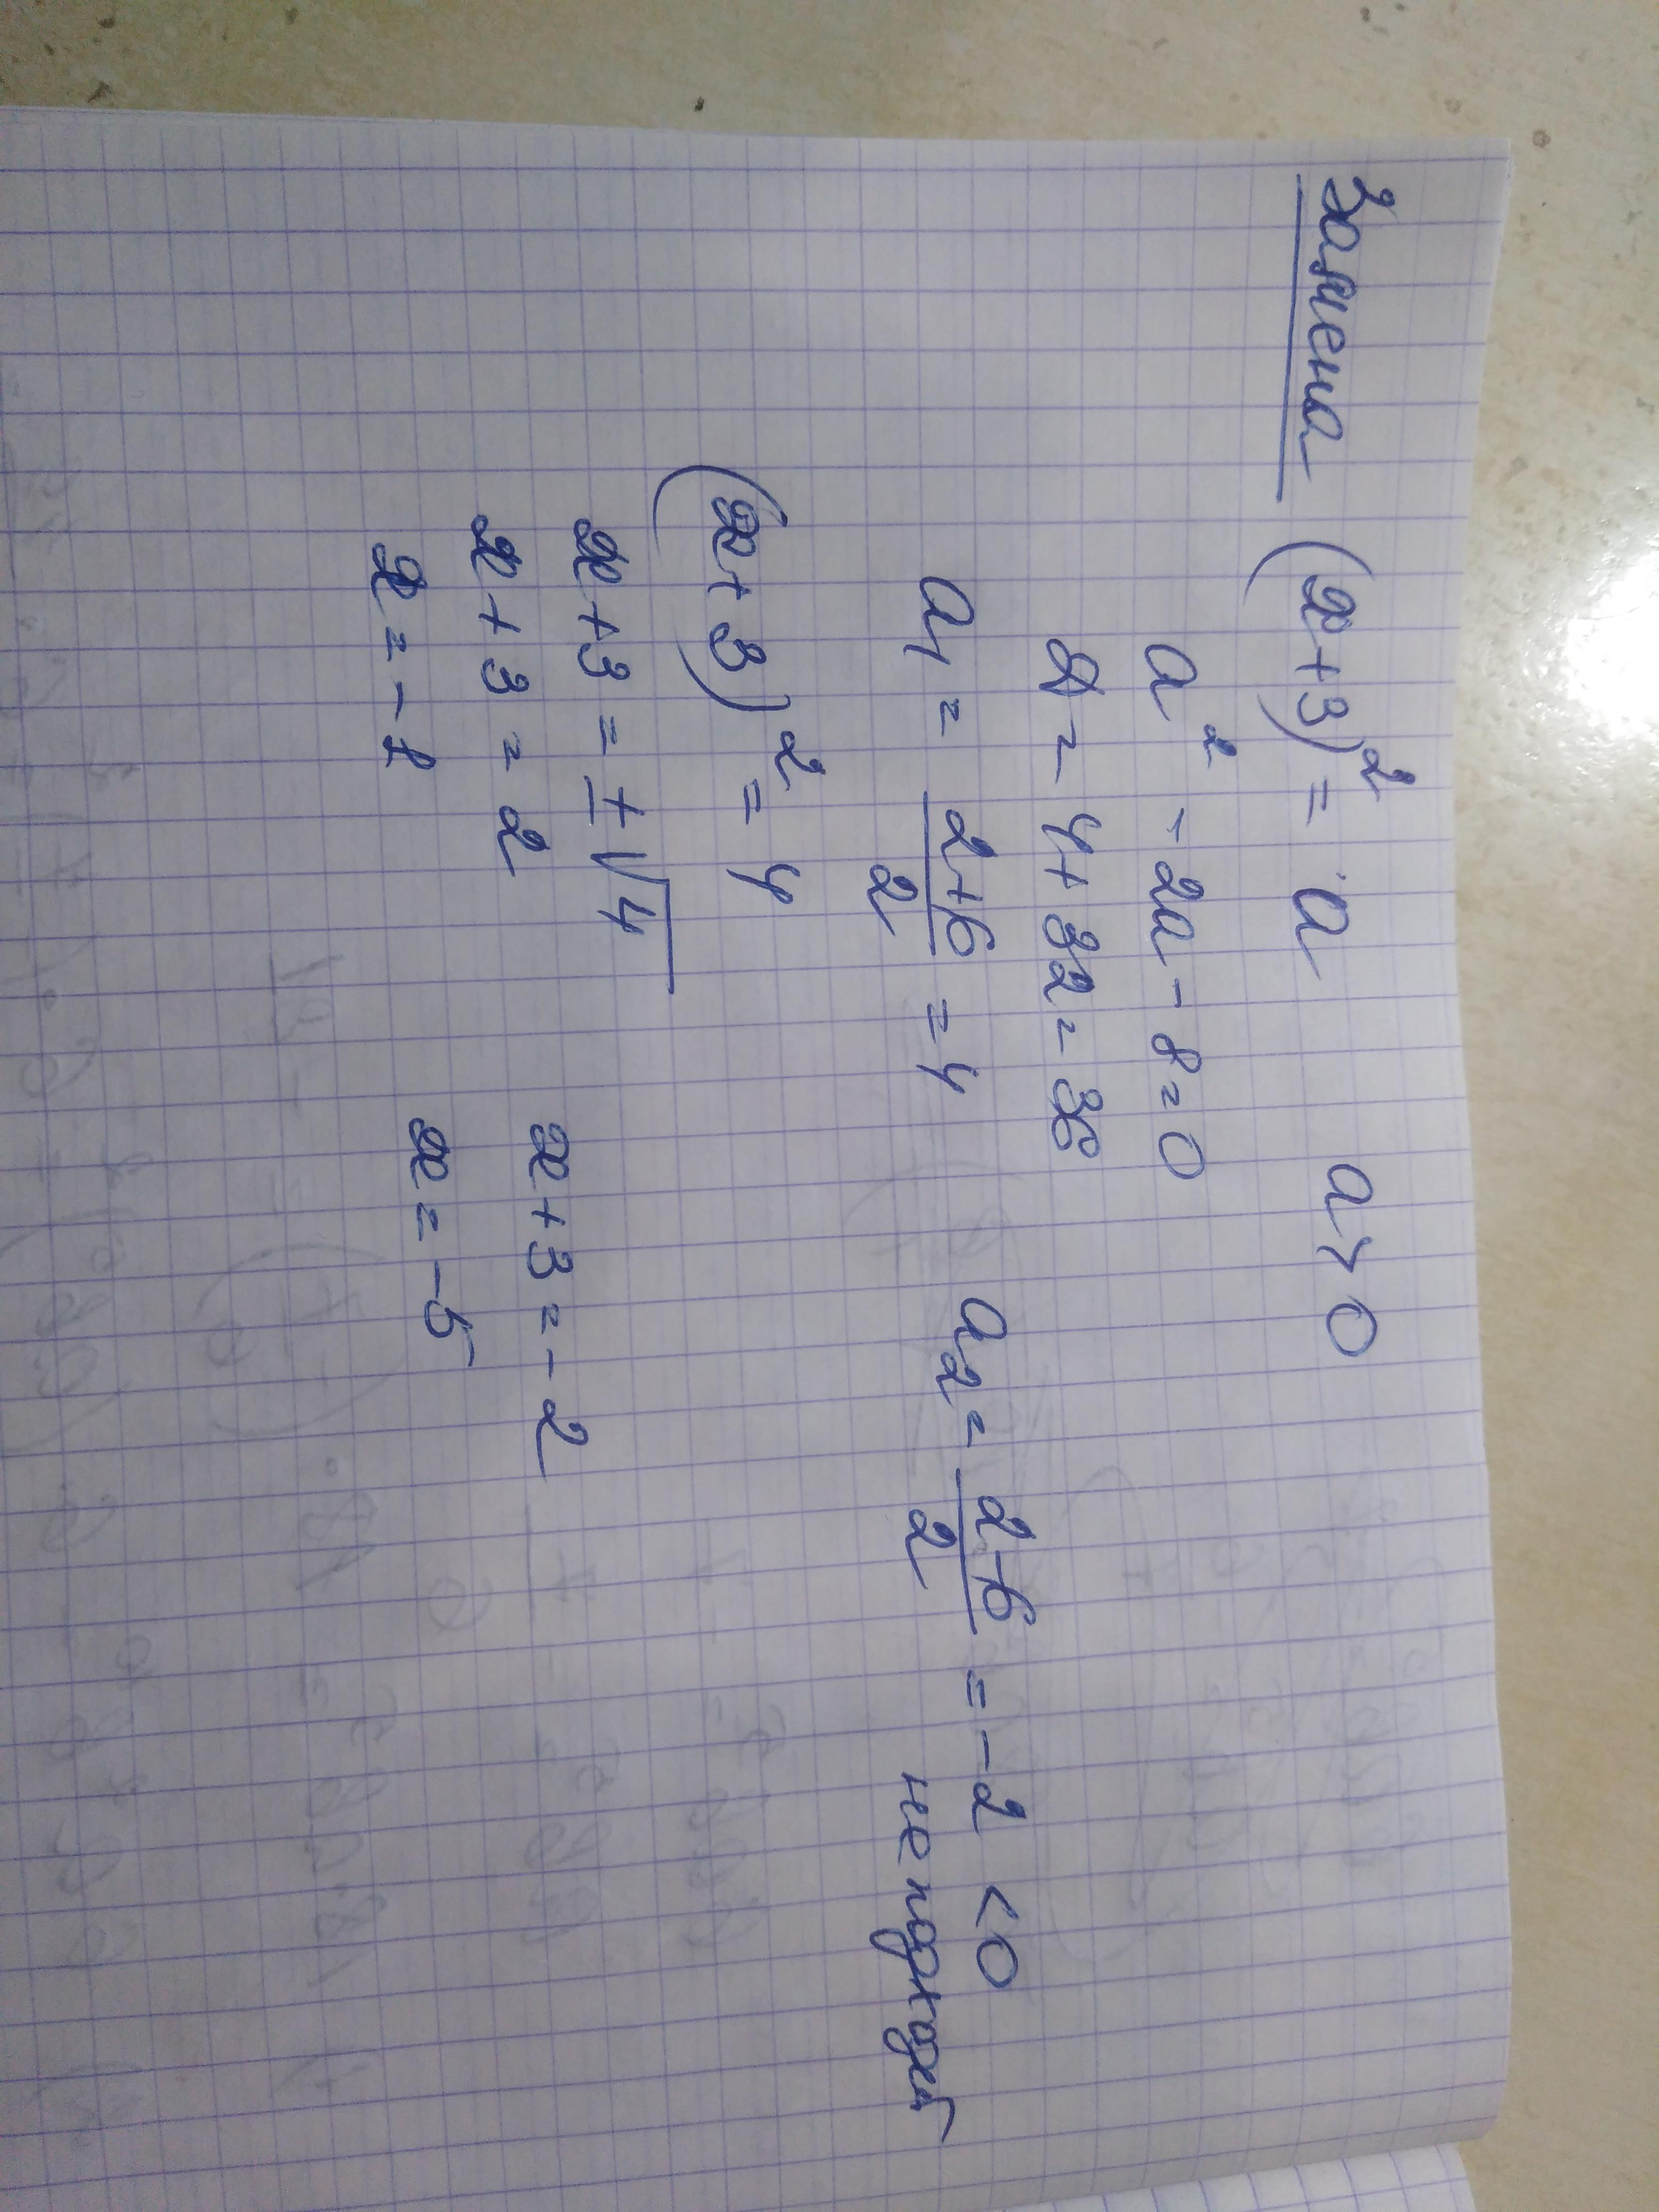 Замена (x+3)² = a a > 0
a² - 2a - 8 = 0
D = 4 + 32 = 36
a₁ = (2+6)/2 = 4 a₂ = (2-6)/2 = -2 < 0
не подходит
(x+3)² = 4
x+3 = ±√4
x+3 = 2 x+3 = -2
x = -1 x = -5